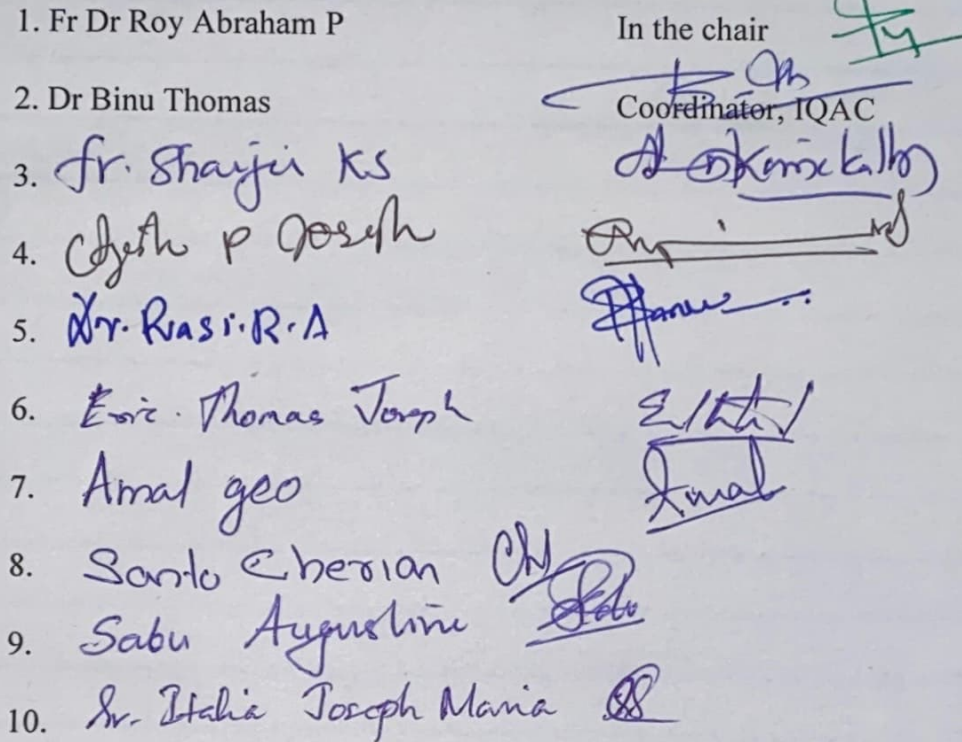 1. Fr Dr Roy Abraham P In the chair
2. Dr Binu Thomas Coordinator, IQAC
3. fr. Shaiju KS
4. P Joseph
5. Dr. Rasi. R. A
6. Eric. Thomas Joseph
7. Amal geo Amal
8. Santo Cherian
9. Sabu Augustine
10. Sr. Italia Joseph Maria